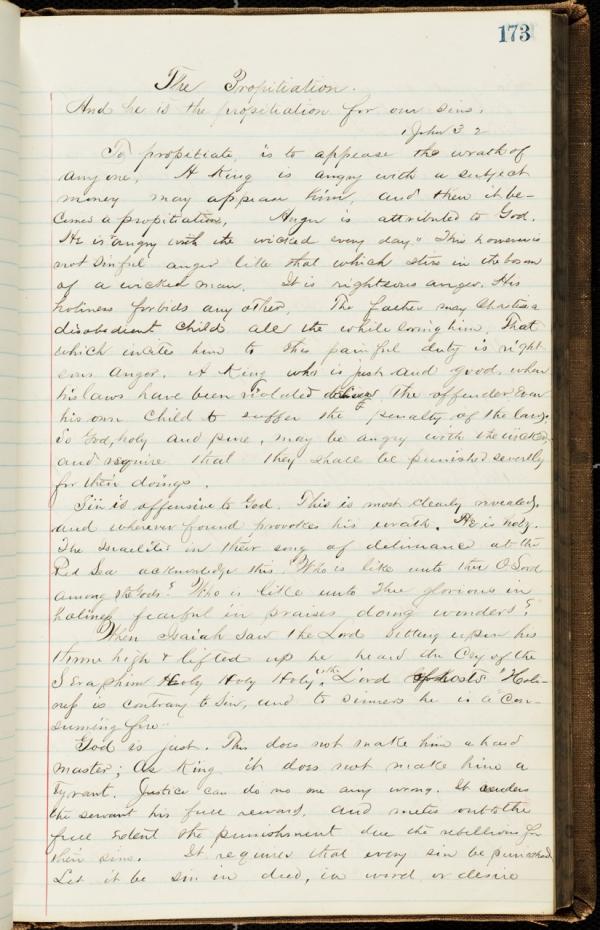 173
The Propitiation.
And he is the propitiation for our sins.
1 John 3 2
To propitiate, is to appease the wrath of
any one, A King is angry with a subject
money may appease him, and then it be-
comes a propitiation, Anger is attributed to God.
He is "angry with the wicked every day." This however is
not sinful anger like that which stirs in the bosom
of a wicked man. It is righteous anger. His
holiness forbids any other. The father may chastise a
disobedient child all the while loving him, That
which incites him to this painful duty is right-
eous anger. A King who is just and good, when
his laws have been violated the offender even
his own child to suffer the penalty of the law.
So God, holy and pure, may be angry with the wicked,
and require that they shall be punished severely
for their doings.
Sin is offensive to God. This is most clearly revealed,
and wherever found provokes his wrath. He is holy.
The Israelites in their song of deliverance at the
Red Sea acknowledge this. "Who is like unto thee O Lord
among the Gods? Who is like unto Thee glorious in
holiness fearful in praises, doing wonders?"
When Isaiah saw the Lord sitting upon his
throne high & lifted up he heard the Cry of the
Seraphim Holy Holy Holy, "is the Lord of hosts" Holi-
ness is contrary to sin, and to sinners he is a "con-
suming fire"
God is just. This does not make him a hard
master; as King it does not make him a
tyrant. Justice can do no one any wrong. It renders
the servant his full reward, and metes out to the
full extent the punishment due the rebellious for
their sins. It requires that every sin be punished
Let it be sin in deed, in word or desire